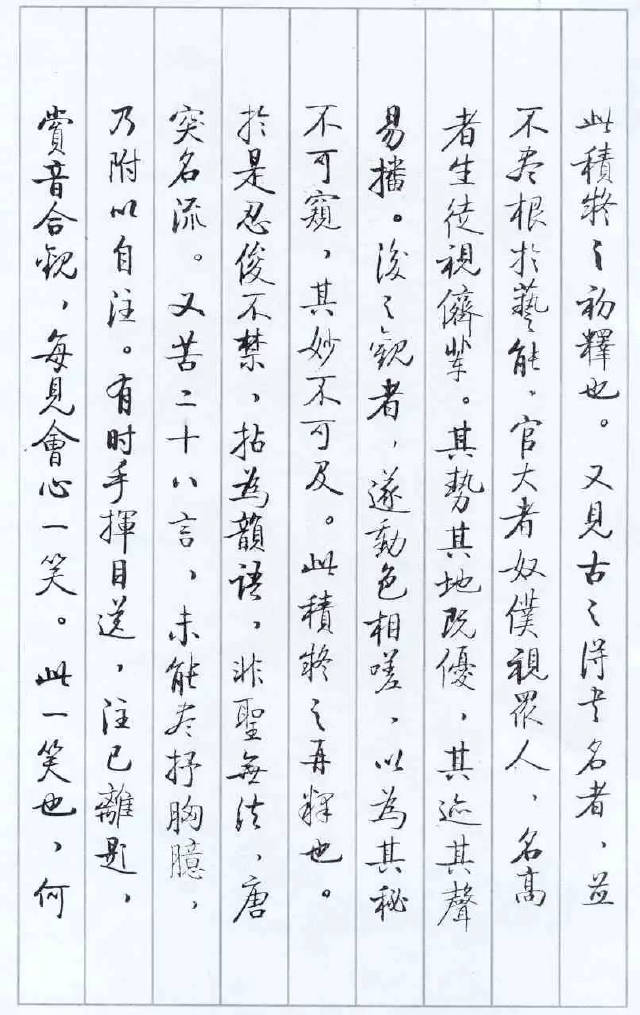 此積疑之初釋也。又見古之得書名者，並
不盡根於藝能，官大者奴僕視眾人，名高
者生徒視儕輩。其勢其地既優，其迹其聲
易播。後之觀者，遂動色相嗟，以為其秘
不可窺，其妙不可及。此積疑之再釋也。
於是忍俊不禁，拈為韻語，非聖無法，唐
突名流。又苦二十八言，未能盡抒胸臆，
乃附以自注。有时手揮目送，注已離題，
賞音合觀，每見會心一笑。此一笑也，何